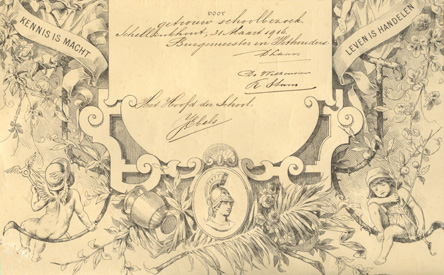 KENNIS IS MACHT
LEVEN IS HANDELEN
voor
getrouw schoolbezoek.
Schellinkhout, 31 Maart 1916.
Burgemeester en Wethouders
Het Hoofd der School.